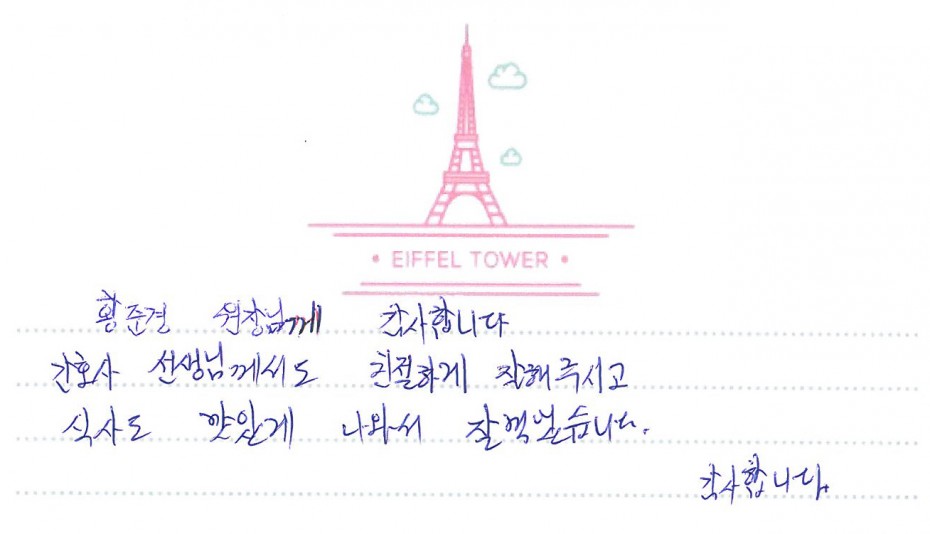 • EIFFEL TOWER •
황준경 원장님께 감사합니다
간호사 선생님께서도 친절하게 잘해주시고
식사도 맛있게 나와서 잘먹었습니다.
감사합니다.